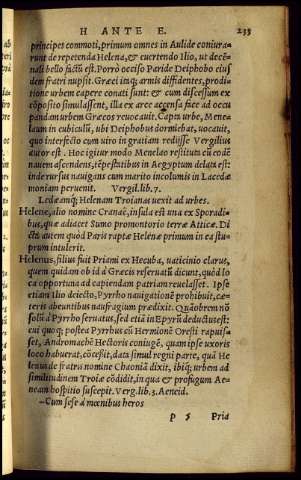 H ANTE E. 233
principes commoti, primum omnes in Aulide coniura-
runt de repetenda Helena, & euertendo Ilio, ut decē-
nali bello factū est. Porrò occiso Paride Deiphobo eius
dem fratri nupsit. Græci inq; armis diffidentes, prodi
tione urbem capere conati sunt: & cum discessum ex
cōposito simulassent, illa ex arce accensa face ad occu
pandam urbem Græcos reuocauit. Capta urbe, Mene
laum in cubiculū, ubi Deiphobus dormiebat, uocauit,
quo interfecto cum uiro in gratiam redijsse Vergilius
autor est. Hoc igitur modo Menelao restituta cū eodē
nauem ascendens, tēpestatibus in Aegyptum delata est:
inde rursus nauigans cum marito incolumis in Lacedæ
moniam peruenit. Vergil. lib. 7.
Ledæamq; Helenam Troianas uexit ad urbes.
Helene, alio nomine Cranaë, insula est una ex Sporadi-
bus, quæ adiacet Sumo promontorio terræ Atticæ. Di
cta autem quod Paris raptæ Helenæ primum in ea stu-
prum intulerit.
Helenus, filius fuit Priami ex Hecuba, uaticinio clarus,
quem quidam ob id à Græcis reseruatū dicunt, quòd lo
ca opportuna ad capiendam patriam reuelasset. Ipse
etiam Ilio deiecto, Pyrrho nauigationē prohibuit, cæ-
teris abeuntibus naufragium prædixit. Quāobrem nō
solū à Pyrrho seruatus, sed etiā in Epyrū deductus est:
cui quoq; postea Pyrrhus cū Hermionē Oresti rapuis-
set, Andromachē Hectoris coniugē, quam ipse uxoris
loco habuerat, cōcessit, data simul regni parte, quā He
lenus de fratris nomine Chaoniā dixit, ibiq; urbem ad
similitudinem Troiæ cōdidit, in qua & profugum Ae-
neam hospitio suscepit. Verg. lib. 3. Aeneid.
–Cum sese à mœnibus heros
p 5 Pria